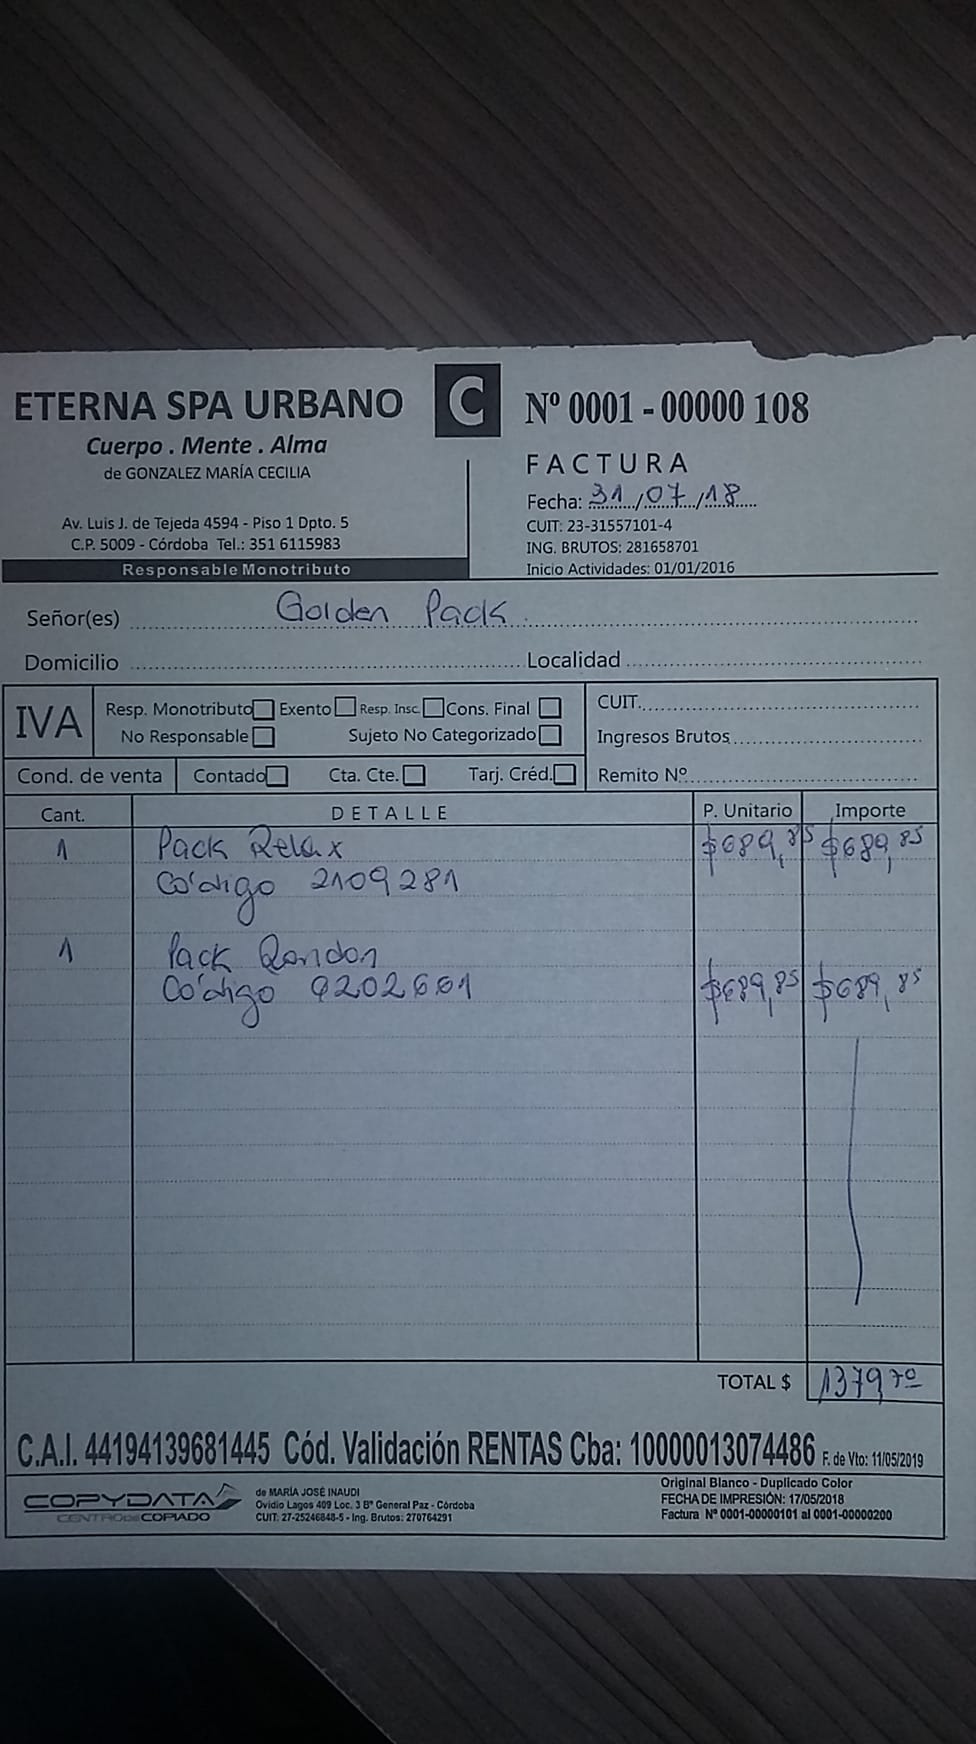 ETERNA SPA URBANO
Cuerpo . Mente . Alma
de GONZALEZ MARÍA CECILIA
Av. Luis J. de Tejeda 4594 - Piso 1 Dpto. 5
C.P. 5009 - Córdoba Tel.: 351 6115983
Responsable Monotributo
C
Nº 0001 - 00000 108
FACTURA
Fecha: 31/07/18
CUIT: 23-31557101-4
ING. BRUTOS: 281658701
Inicio Actividades: 01/01/2016
Señor(es) Golden Pack
Domicilio Localidad
IVA
Resp. Monotributo Exento Resp. Insc. Cons. Final
No Responsable Sujeto No Categorizado
CUIT.
Ingresos Brutos
Cond. de venta Contado Cta. Cte. Tarj. Créd. Remito Nº
Cant. DETALLE P. Unitario Importe
1 Pack Relax $689,85 $689,85
Código 2109281
1 Pack
Código 9202661 $689,85 $689,85
TOTAL $ 1379 70
C.A.I. 44194139681445 Cód. Validación RENTAS Cba: 10000013074486 F. de Vto: 11/05/2019
COPYDATA
CENTRO DE COPIADO
de MARÍA JOSÉ INAUDI
Ovidio Lagos 409 Loc. 3 Bº General Paz - Córdoba
CUIT: 27-25246848-5 - Ing. Brutos: 270764291
Original Blanco - Duplicado Color
FECHA DE IMPRESIÓN: 17/05/2018
Factura Nº 0001-00000101 al 0001-00000200